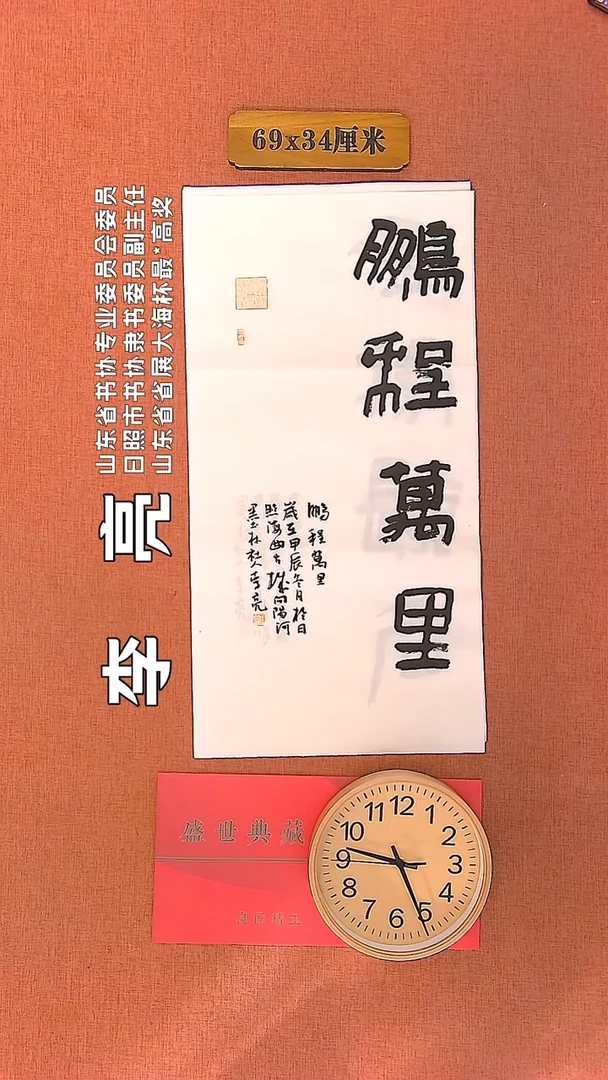 69x34厘米
鹏程萬里
鹏程萬里
歲在甲辰冬月於日
照海曲古城向陽河
李亮
山东省书协专业委员会委员
日照市书协隶书委员副主任
山东省省展大海杯最*高奖
李亮
盛世典藏
12
1
2
3
4
5
6
7
8
9
10
11